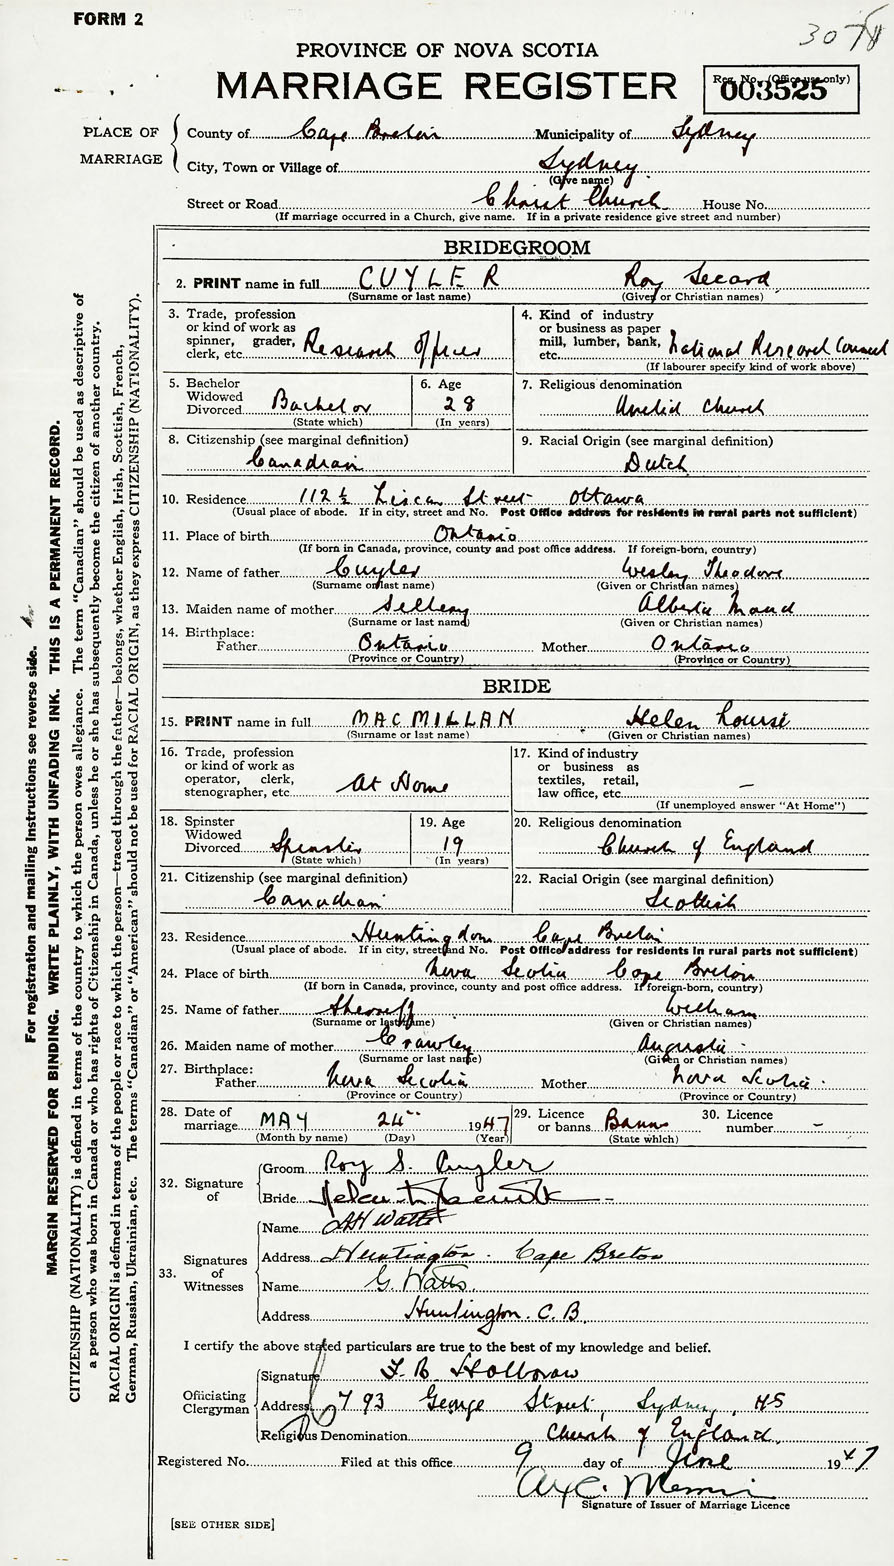 FORM 2
307
PROVINCE OF NOVA SCOTIA
MARRIAGE REGISTER
Reg. No. (Office use only)
003525
PLACE OF MARRIAGE
County of Cape Breton Municipality of Sydney
City, Town or Village of Sydney
(Give name)
Street or Road Christ Church House No.
(If marriage occurred in a Church, give name. If in a private residence give street and number)
BRIDEGROOM
2. PRINT name in full CUYLER Roy Secord
(Surname or last name) (Given or Christian names)
3. Trade, profession or kind of work as spinner, grader, clerk, etc. Research Officer
4. Kind of industry or business as paper mill, lumber, bank, etc. National Research Council
(If labourer specify kind of work above)
5. Bachelor Widowed Divorced Bachelor
(State which)
6. Age 28
(In years)
7. Religious denomination
United Church
8. Citizenship (see marginal definition)
Canadian
9. Racial Origin (see marginal definition)
Dutch
10. Residence 112½ Street Ottawa
(Usual place of abode. If in city, street and No. Post Office address for residents in rural parts not sufficient)
11. Place of birth Ontario
(If born in Canada, province, county and post office address. If foreign-born, country)
12. Name of father Cuyler Wesley Theodore
(Surname or last name) (Given or Christian names)
13. Maiden name of mother Alberta Maud
(Surname or last name) (Given or Christian names)
14. Birthplace:
Father Ontario Mother Ontario
(Province or Country) (Province or Country)
BRIDE
15. PRINT name in full MACMILLAN Helen Louise
(Surname or last name) (Given or Christian names)
16. Trade, profession or kind of work as operator, clerk, stenographer, etc. At Home
17. Kind of industry or business as textiles, retail, law office, etc. —
(If unemployed answer "At Home")
18. Spinster Widowed Divorced Spinster
(State which)
19. Age 19
(In years)
20. Religious denomination
Church of England
21. Citizenship (see marginal definition)
Canadian
22. Racial Origin (see marginal definition)
Scottish
23. Residence Huntingdon Cape Breton
(Usual place of abode. If in city, street and No. Post Office address for residents in rural parts not sufficient)
24. Place of birth Nova Scotia Cape Breton
(If born in Canada, province, county and post office address. If foreign-born, country)
25. Name of father Sherriff William
(Surname or last name) (Given or Christian names)
26. Maiden name of mother Crawley Augusta
(Surname or last name) (Given or Christian names)
27. Birthplace:
Father Nova Scotia Mother Nova Scotia
(Province or Country) (Province or Country)
28. Date of marriage MAY 24 1947
(Month by name) (Day) (Year)
29. Licence or banns Banns
(State which)
30. Licence number –
32. Signature of
Groom Roy S. Cuyler
Bride Helen
33. Signatures of Witnesses
Name Watts
Address Huntington. Cape Breton
Name G. Watts.
Address Huntington. C.B.
I certify the above stated particulars are true to the best of my knowledge and belief.
Officiating Clergyman
Signature F. B. Holborow
Address 793 George Street, Sydney, NS
Religious Denomination Church of England.
Registered No. Filed at this office 9 day of June 1947
Signature of Issuer of Marriage Licence
[SEE OTHER SIDE]
For registration and mailing instructions see reverse side.
MARGIN RESERVED FOR BINDING. WRITE PLAINLY, WITH UNFADING INK. THIS IS A PERMANENT RECORD.
CITIZENSHIP (NATIONALITY) is defined in terms of the country to which the person owes allegiance. The term "Canadian" should be used as descriptive of
a person who was born in Canada or who has rights of Citizenship in Canada, unless he or she has subsequently become the citizen of another country.
RACIAL ORIGIN is defined in terms of the people or race to which the person—traced through the father—belongs, whether English, Irish, Scottish, French,
German, Russian, Ukrainian, etc. The terms "Canadian" or "American" should not be used for RACIAL ORIGIN, as they express CITIZENSHIP (NATIONALITY).